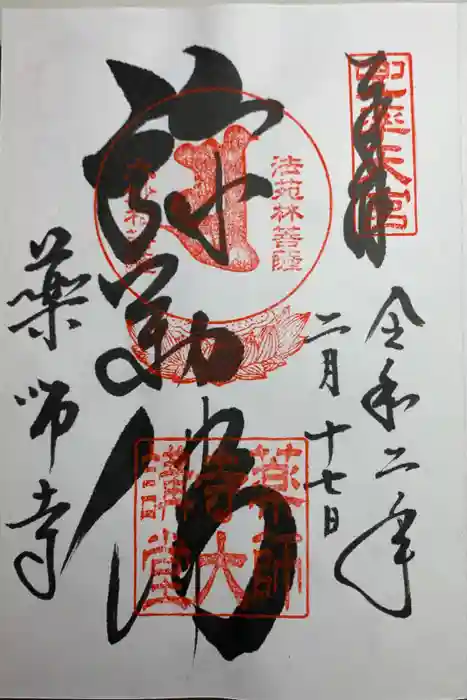 奉拝
兜率天宮
令和二年
二月十七日
弥勒佛
法苑林菩薩
薬師寺大講堂
薬師寺